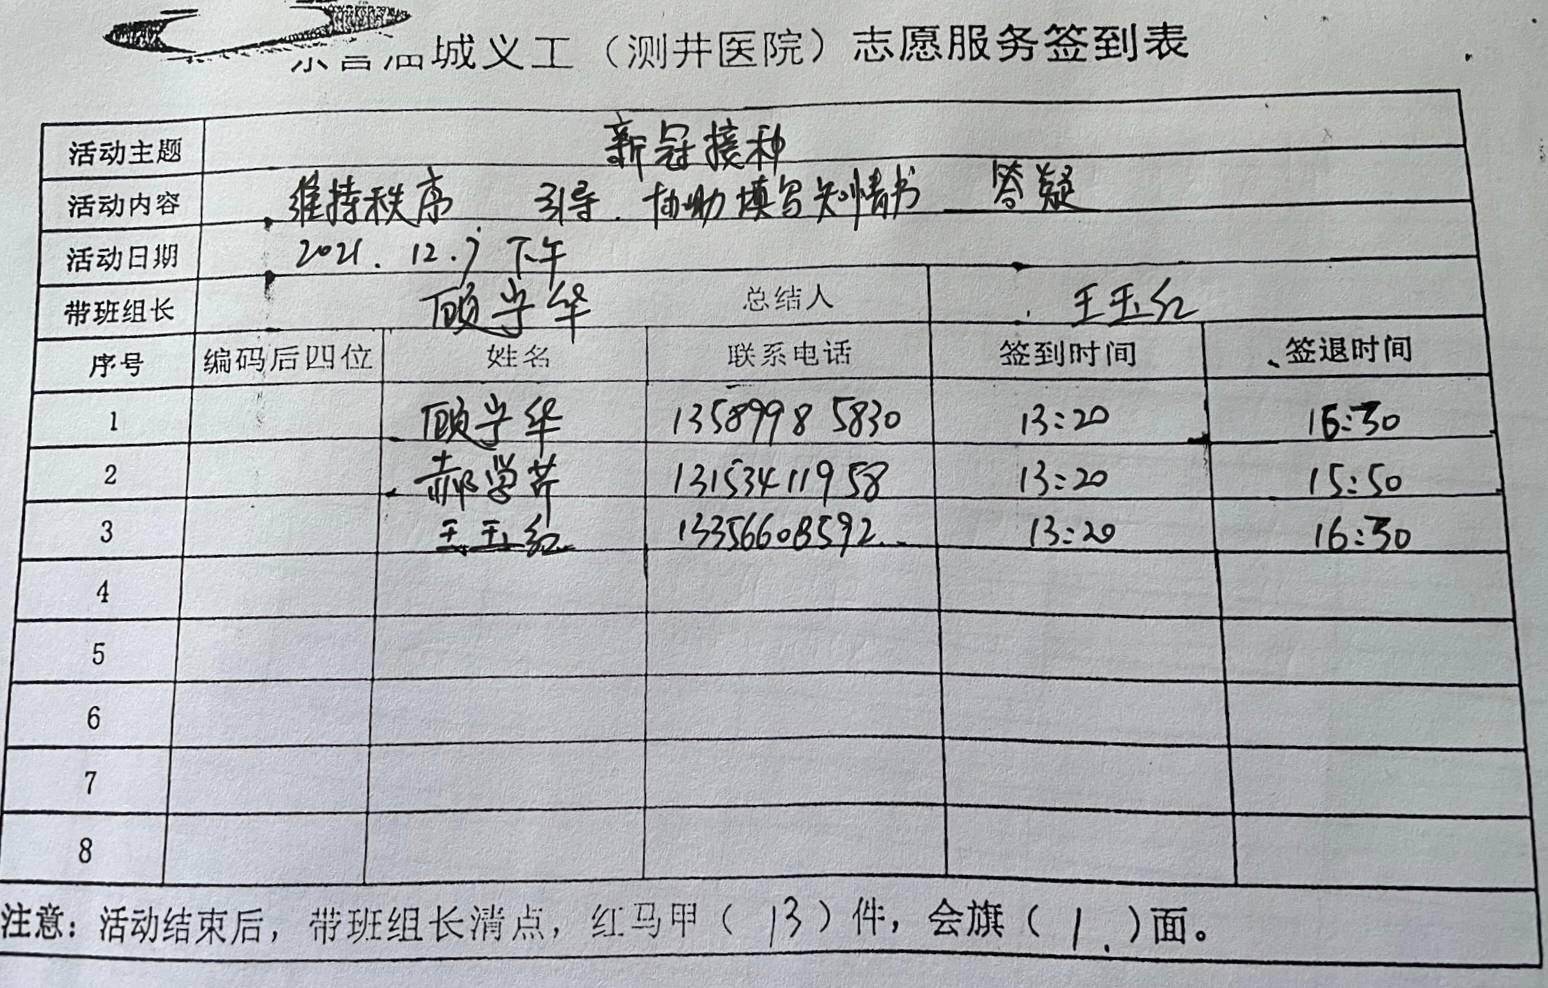 东营油城义工（测井医院）志愿服务签到表
活动主题 新冠接种
活动内容 维持秩序 引导. 协助填写知情书 答疑
活动日期 2021.12.7 下午
带班组长 顾学华 总结人 王玉红
序号 编码后四位 姓名 联系电话 签到时间 签退时间
1 顾学华 13589985830 13:20 16:30
2 郝学芹 13153411958 13:20 15:50
3 王玉红 13356608592 13:20 16:30
4
5
6
7
8
注意：活动结束后，带班组长清点，红马甲（13）件，会旗（1.）面。